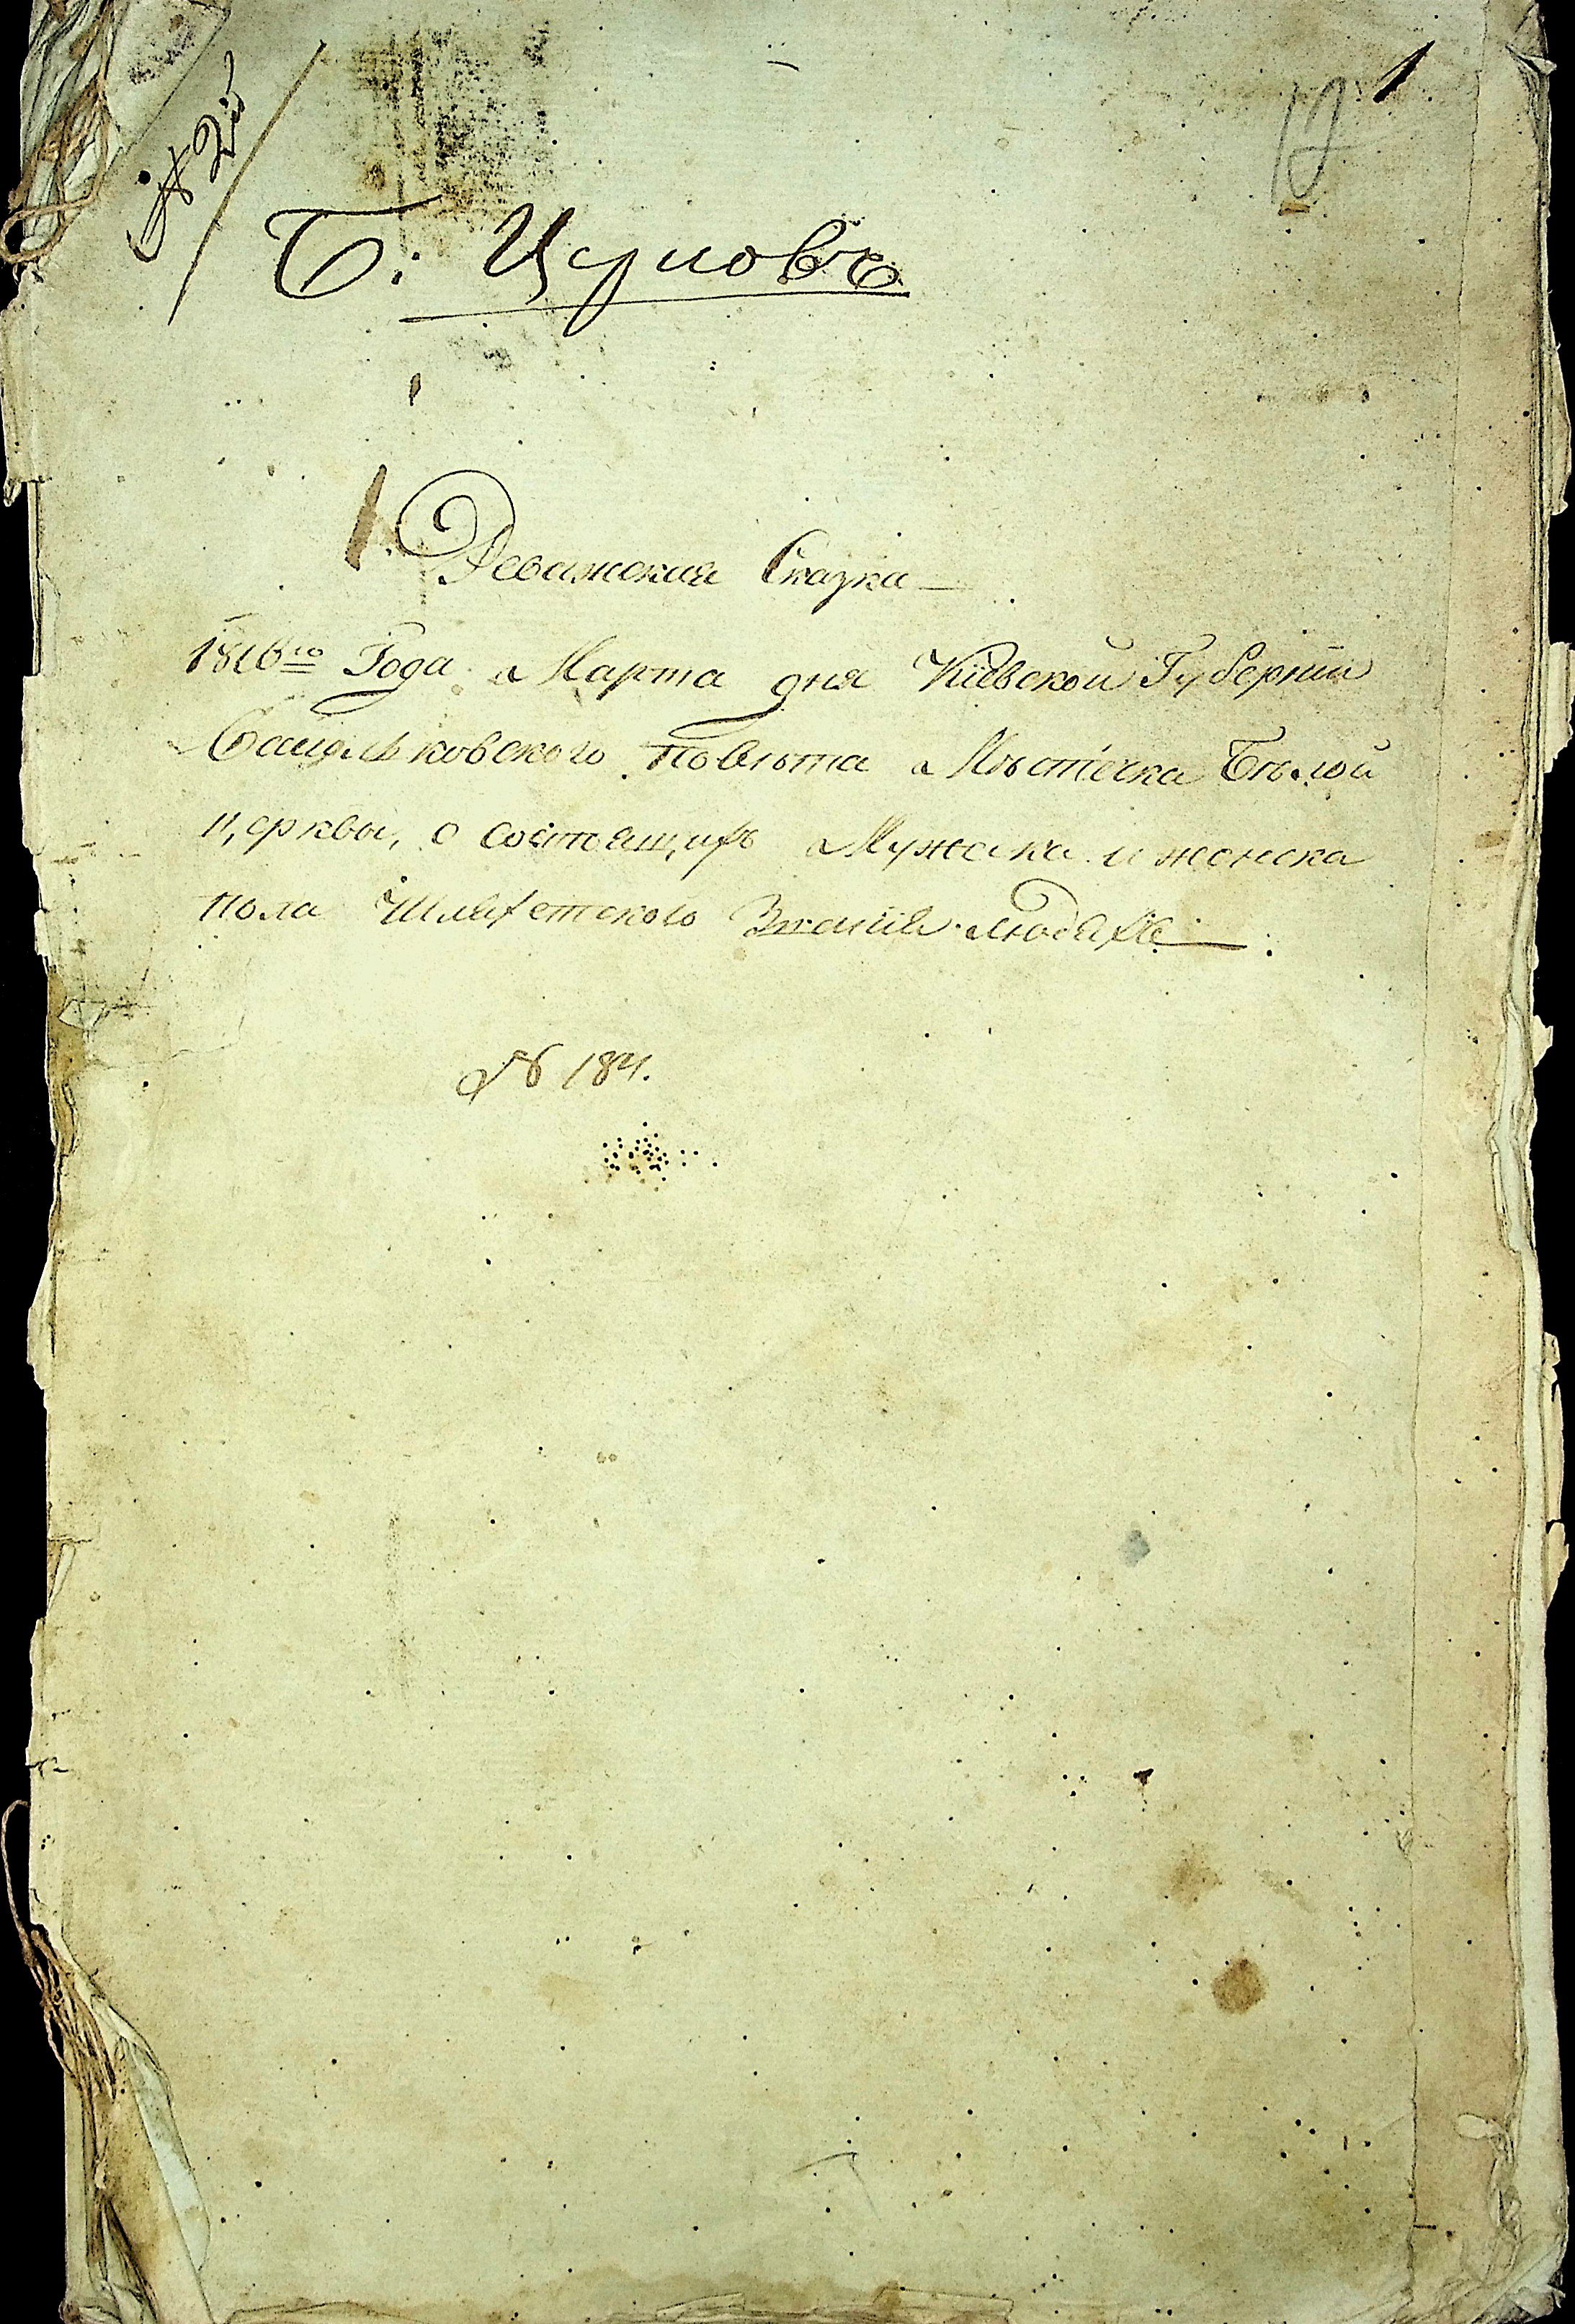 1
12
№ 2й
Б: Церковь
Ревижская Сказка
1816го Года Марта дня Кіевской Губерніи
Васильковского Повѣта Мѣстечка Бѣлой
церкви, о состоящихъ Мужеска и женска
пола Шляхетского Званія людяхъ
№ 184.